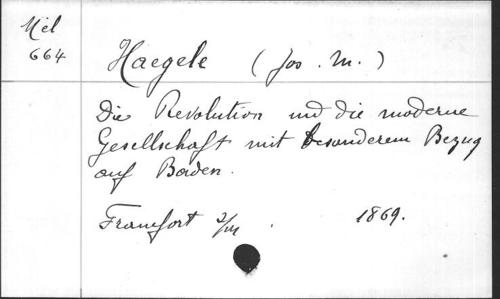 Mél
664
Haegele (Jos. M.)
Die Revolution und die moderne
Gesellschaft mit besonderem Bezug
auf Baden.
Francfort s/M. 1869.